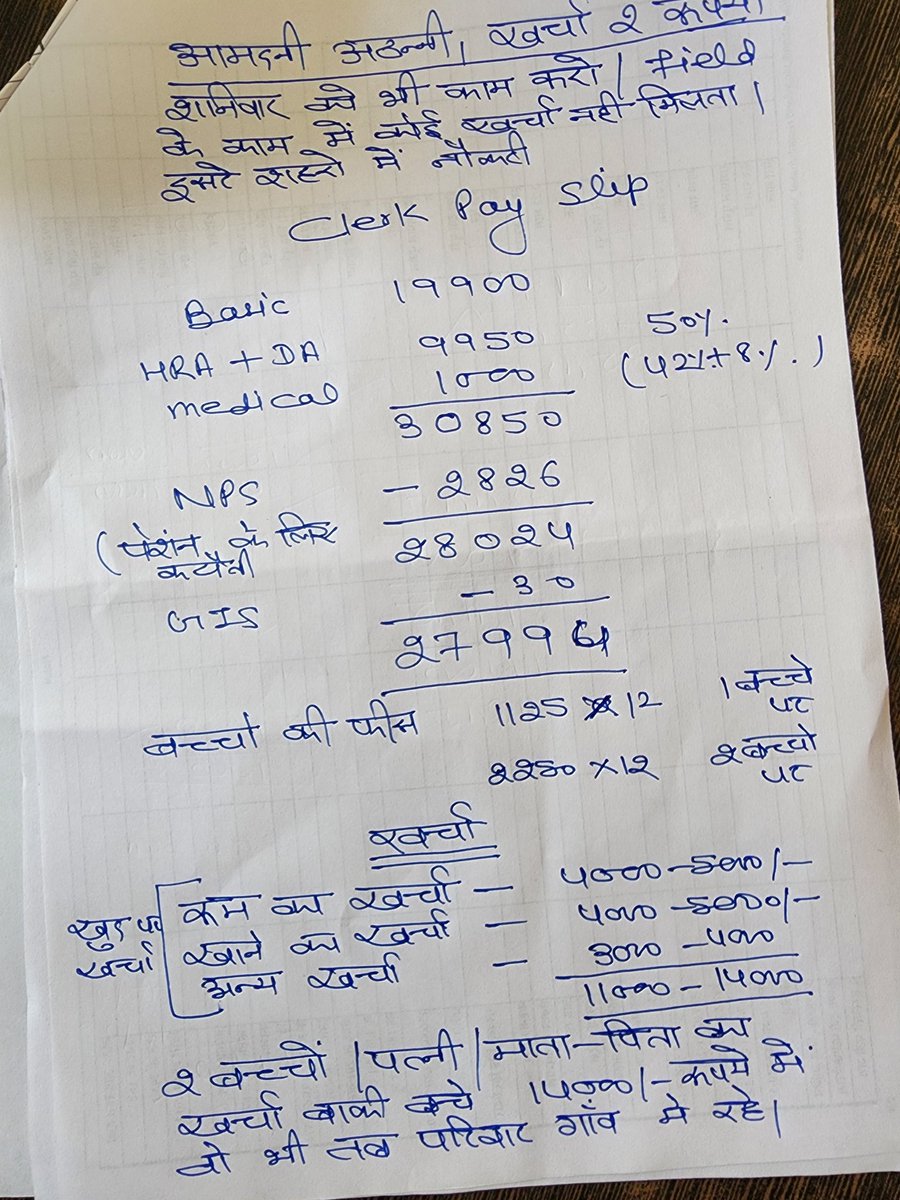 आमदनी अठन्नी, खर्चा २ रूपया
शनिवार को भी काम करो। field
के काम में कोई खर्चा नही मिलता।
दूसरे शहरो में नौकरी
Clerk Pay Slip
Basic 19900
HRA + DA 9950 50%.
medical 1000 (42%+8%.)
30850
NPS - 2826
(पेशंन के लिए 28024
कटौती
GIS - 30
27994
बच्चो की फीस 1125 x 12 1 बच्चे
पर
2250 x 12 2 बच्चो
पर
खर्चा
खुद पर
खर्चा
कमरे का खर्चा - 4000 - 5000/-
खाने का खर्चा - 4000 - 5000/-
अन्य खर्चा - 3000 - 4000
11000 - 14000
2 बच्चों / पत्नी / माता-पिता का
खर्चा बाकी बचे 14000/- रूपये में
वो भी तब परिवार गाँव मे रहे।